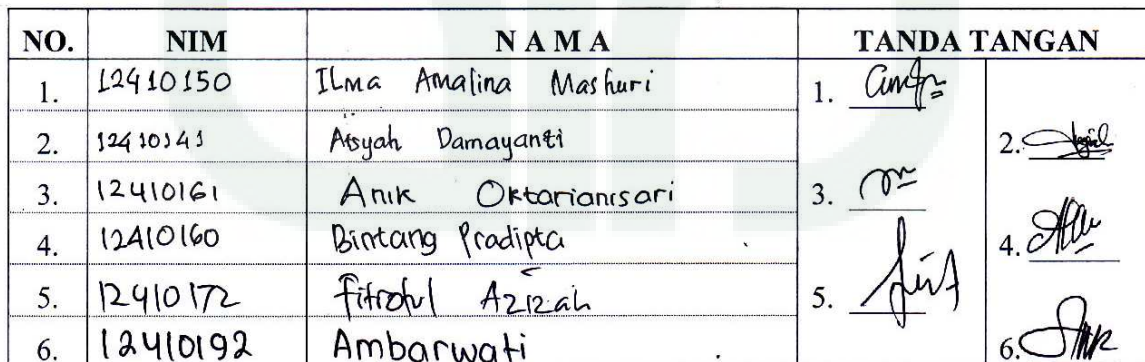 NO. NIM NAMA TANDA TANGAN
1. 12410150 Ilma Amalina Mashuri 1.
2. 12410141 Aisyah Damayanti 2.
3. 12410161 Anik Oktarianisari 3.
4. 12410160 Bintang Pradipta 4.
5. 12410172 Fitrotul Azizah 5.
6. 12410192 Ambarwati 6.